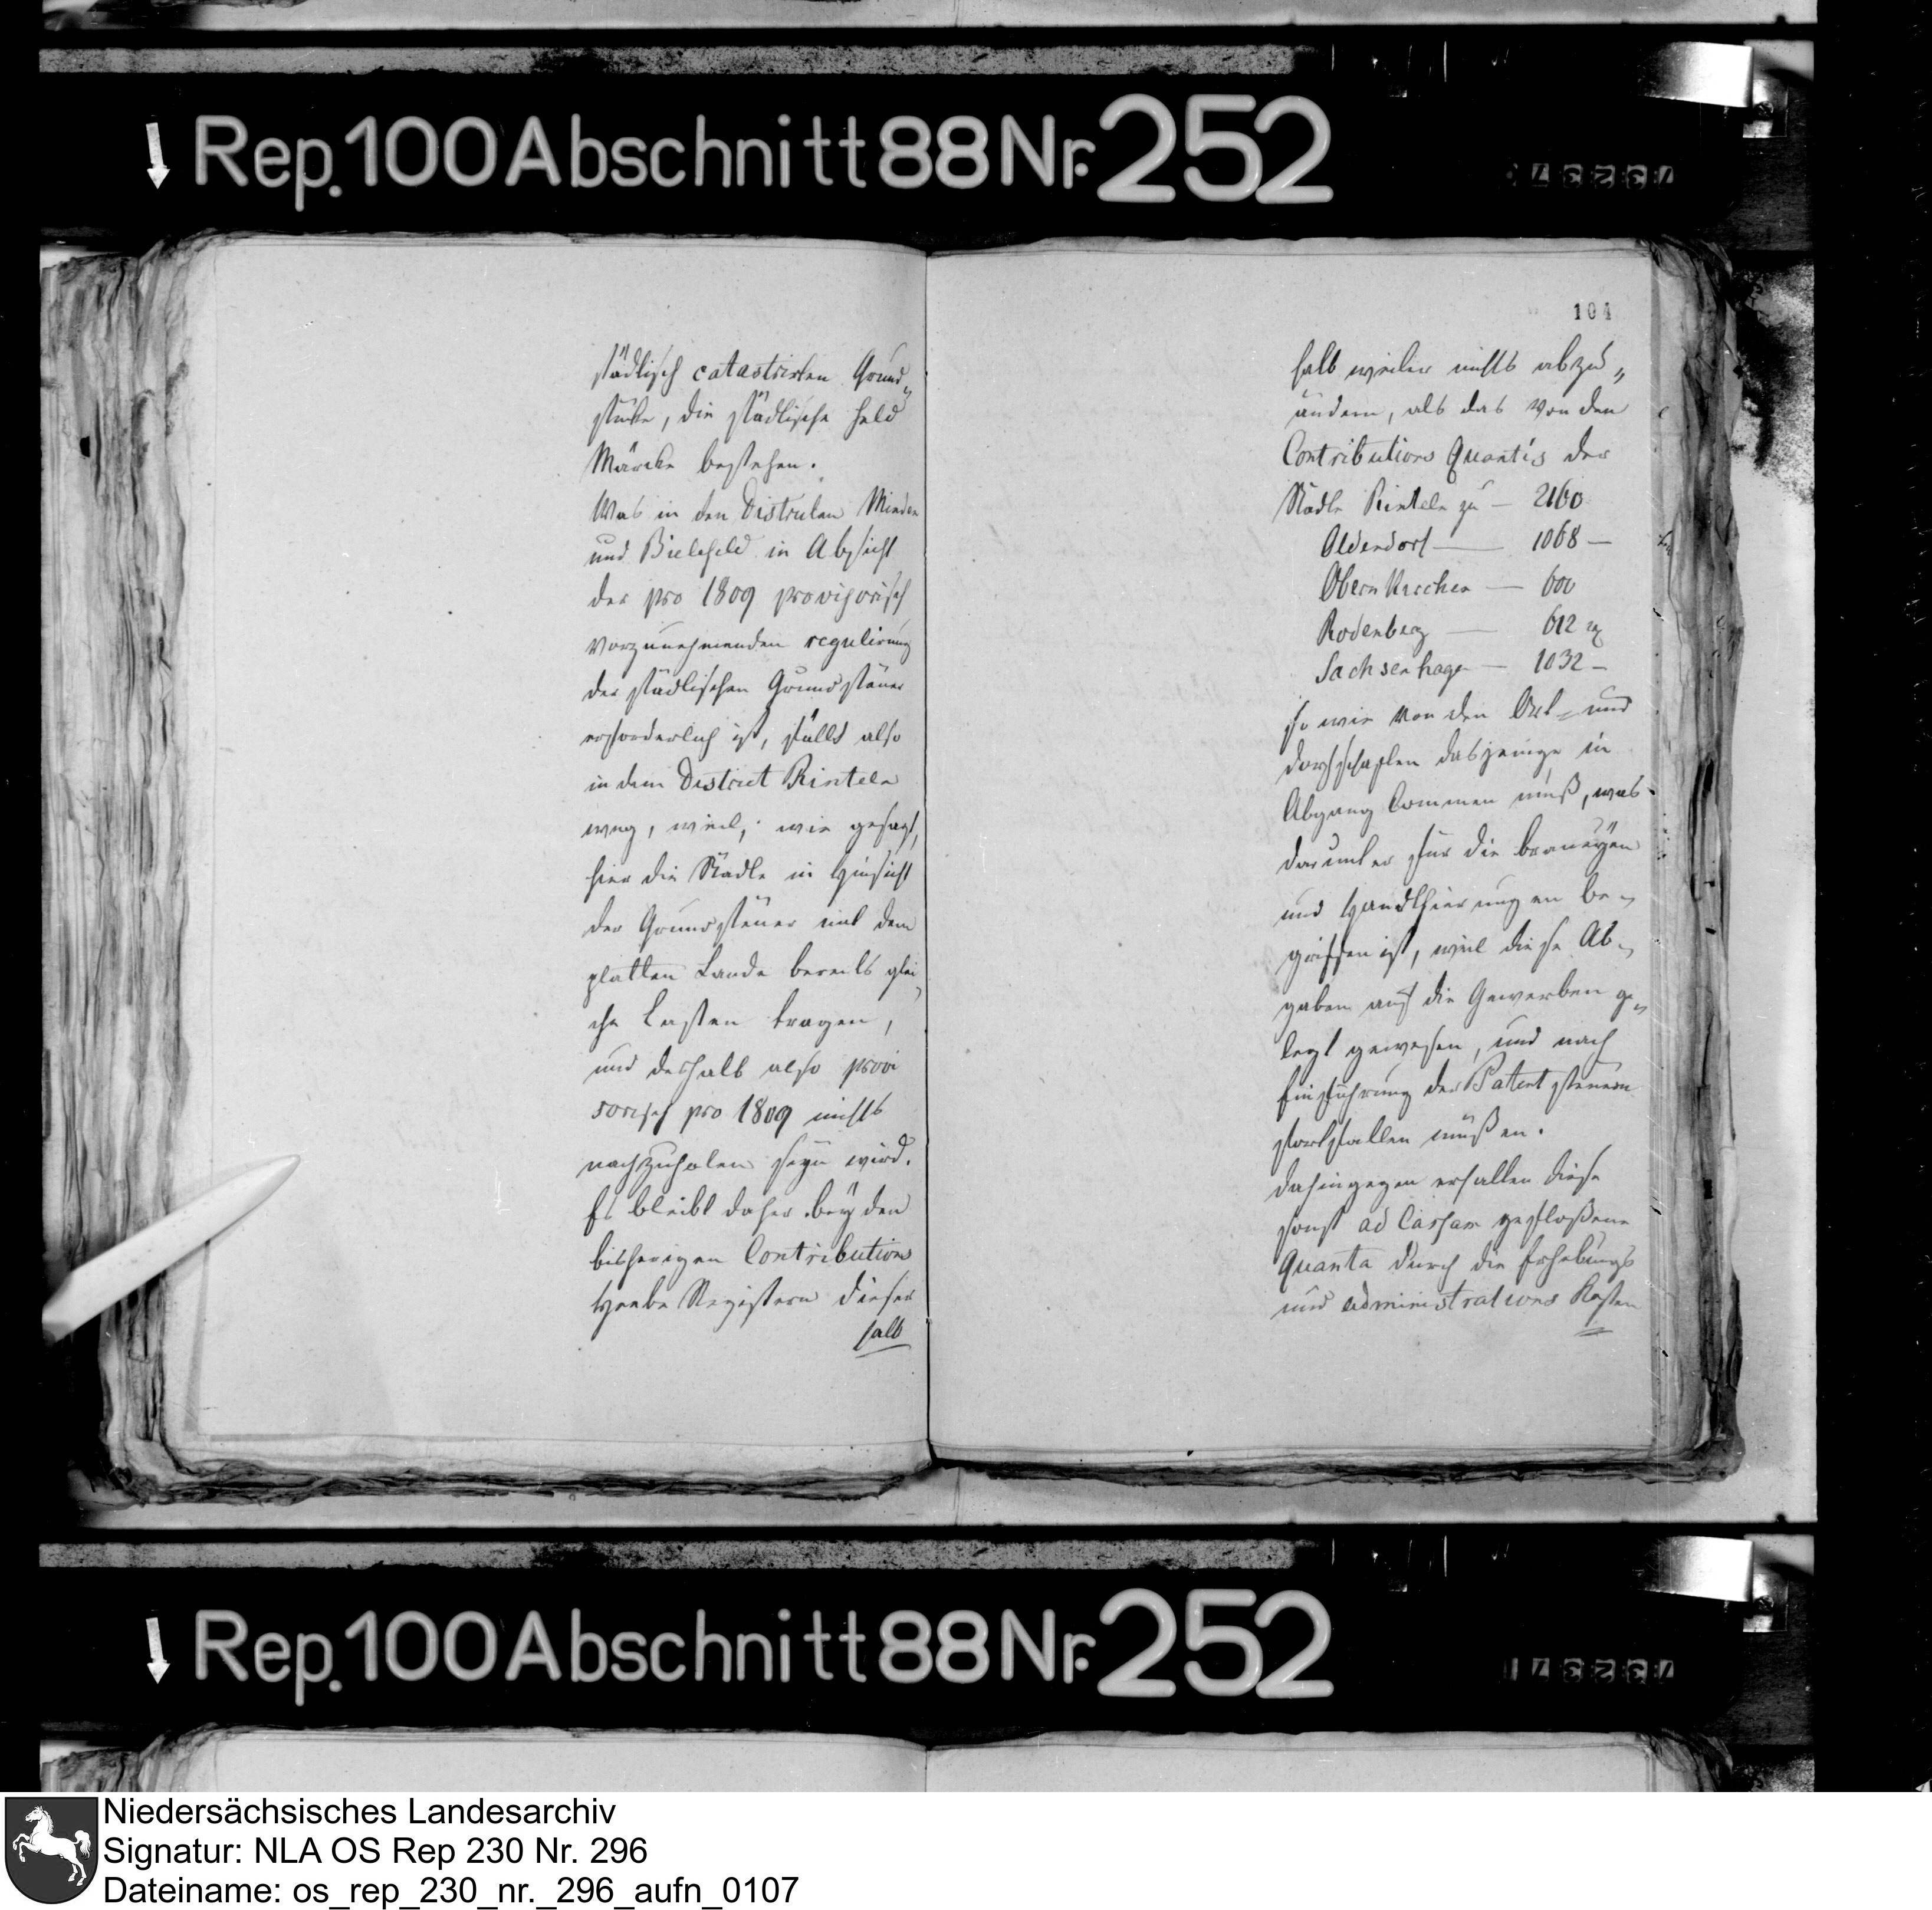 Rep. 100 Abschnitt 88 Nr. 252
städtisch catastrirten Grund„
stücke, die städtische Feld
Märcke bestehen.
Was in den Districten Minden
und Bielefeld in Absicht
der pro 1809 provisorisch
vorzunehmenden regulirung
der städtischen Grundsteuer
erforderlich ist, fällt also
in dem District Rinteln
weg, weil, wie gesagt,
hier die Städte in Hinsicht
der Grundsteuer mit dem
platten Lande bereits glei„
che Lasten tragen,
und deshalb also provi
sorisch pro 1809 nichts
nachzuholen seyn wird.
Es bleibt daher bey den
bisherigen Contributions
Heebe Registern dieser
halb
104
halb weiter nichts abzu„
ändern, als das von den
Contributions Quantis der
Städte Rinteln zu — 2160
Oldendorf — 1068 —
Obernkirchen — 600
Rodenberg — 612
Sachsenhagen — 1032 —
so wie von den Ort= und
dorfschaften dasjenige in
Abgang kommen muß, was
darunter für die braueyen
und Handthierungen be„
griffen ist, weil diese Ab„
gaben auf die Gewerben ge„
legt gewesen, und nach
Einführung der Patentsteuern
fortfallen müßen.
Dahingegen erhalten diese
sonst ad Cassam gefloßene
Quanta durch die Erhebungs
und administrations Kosten
Rep. 100 Abschnitt 88 Nr. 252
Niedersächsisches Landesarchiv
Signatur: NLA OS Rep 230 Nr. 296
Dateiname: os_rep_230_nr._296_aufn_0107